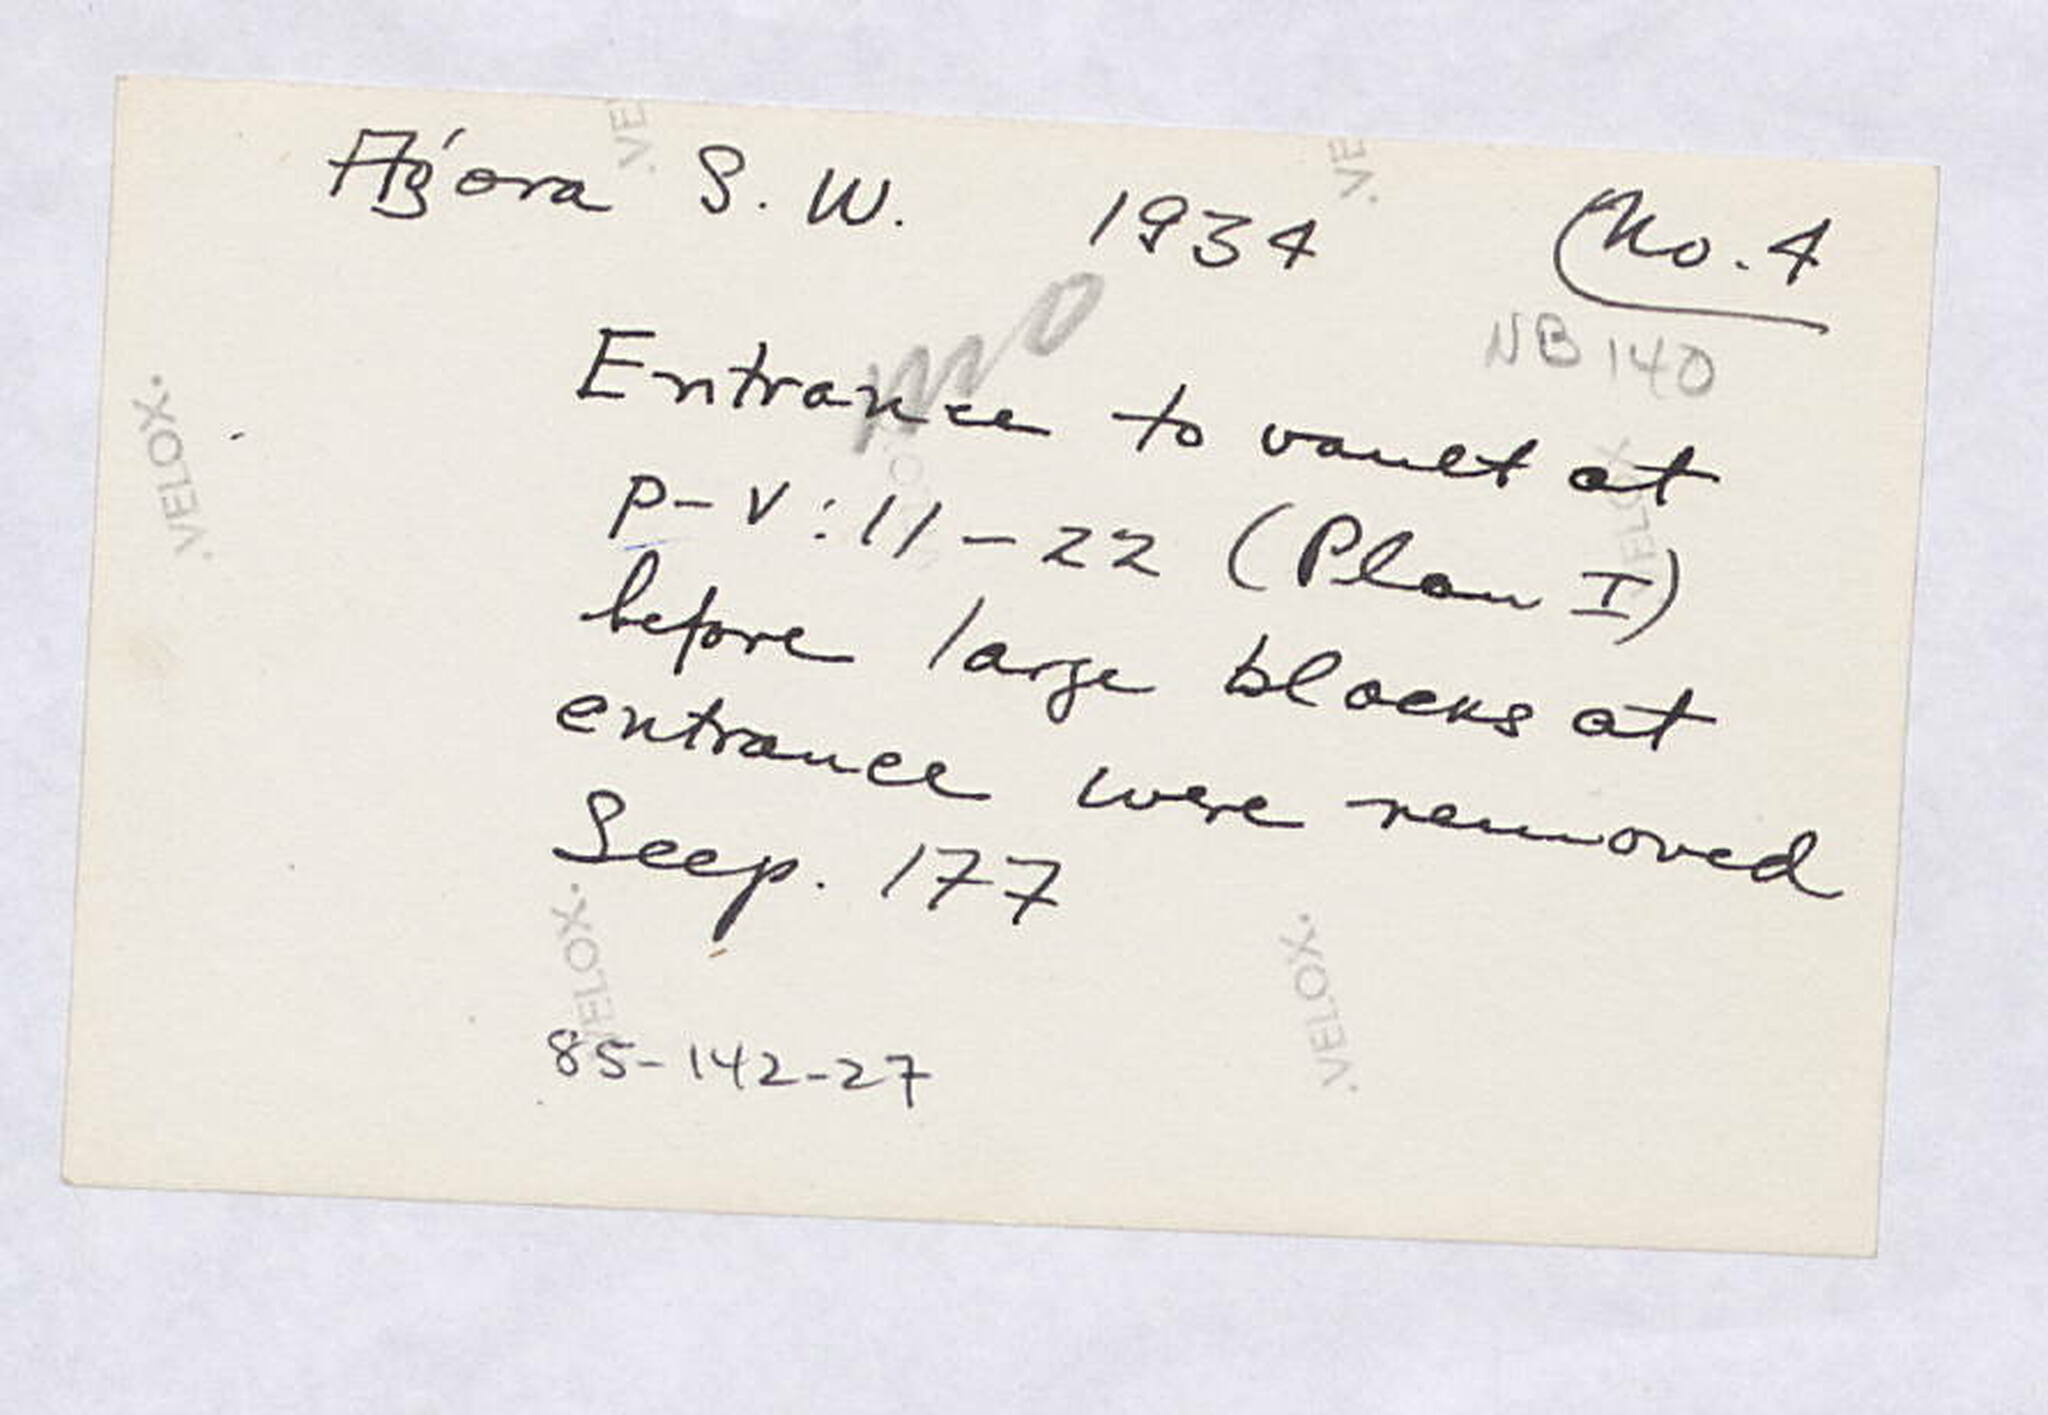 Agora S. W. 1934 No. 4
NB 140
no
Entrance to vault at
P-V:11-22 (Plan I)
before large blocks at
entrance were removed
See p. 177
85-142-27
.VELOX.
.VELOX.
.VELOX.
.VE
.VE